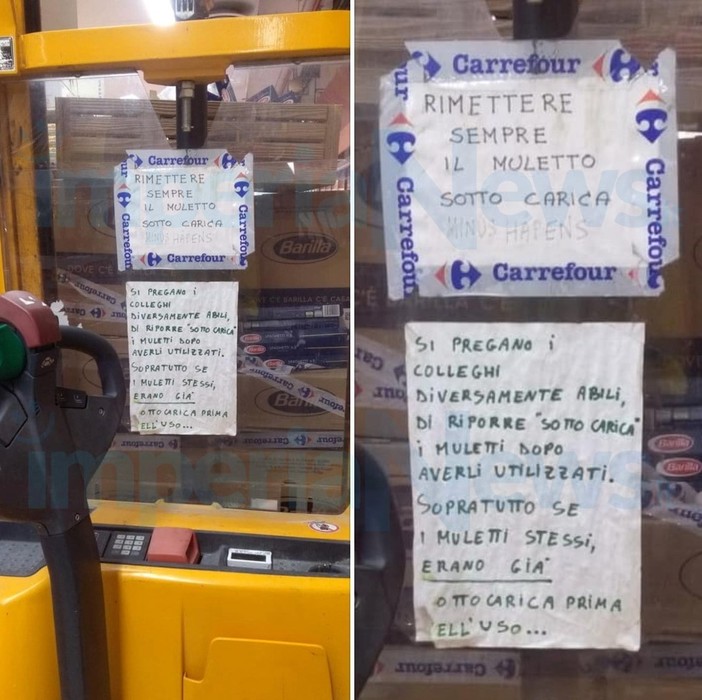 Carrefour
RIMETTERE
SEMPRE
IL MULETTO
SOTTO CARICA
MINUS HAPENS
Carrefour
Carrefour
Carrefour
SI PREGANO i
COLLEGHI
DIVERSAMENTE ABILI,
DI RIPORRE "SOTTO CARICA"
i MULETTI DOPO
AVERLI UTILIZZATI.
SOPRATUTTO SE
I MULETTI STESSI,
ERANO GIA'
OTTOCARICA PRIMA
ELL'USO...
Barilla
Carrefour
RIMETTERE
SEMPRE
IL MULETTO
SOTTO CARICA
MINUS HAPENS
Carrefour
Carrefour
Carrefour
SI PREGANO i
COLLEGHI
DIVERSAMENTE ABILI,
DI RIPORRE "SOTTO CARICA"
i MULETTI DOPO
AVERLI UTILIZZATI.
SOPRATUTTO SE
I MULETTI STESSI,
ERANO GIA'
OTTOCARICA PRIMA
ELL'USO...
Barilla
Barilla
imperiaNews
imperiaNews